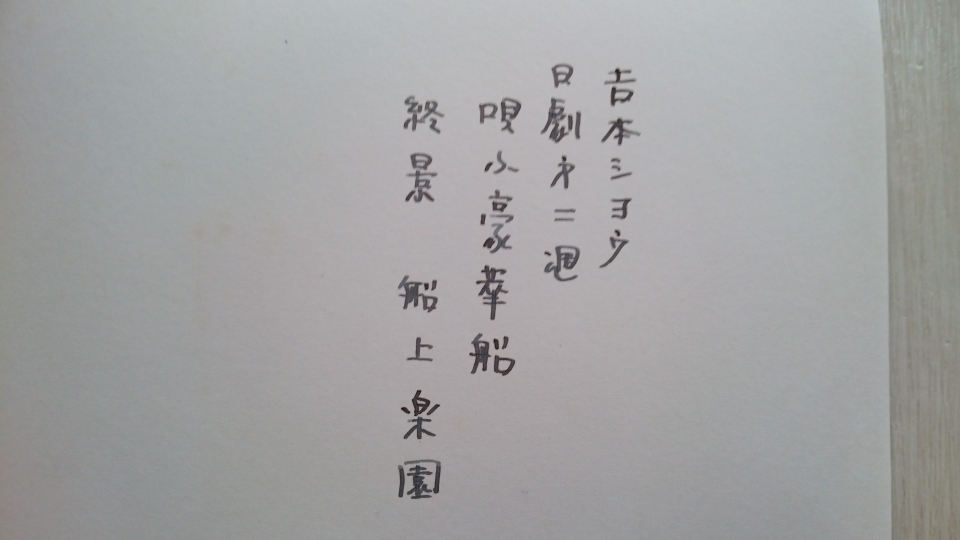 吉本ショウ
日劇才二週
唄ふ豪華船
終景 船上楽園